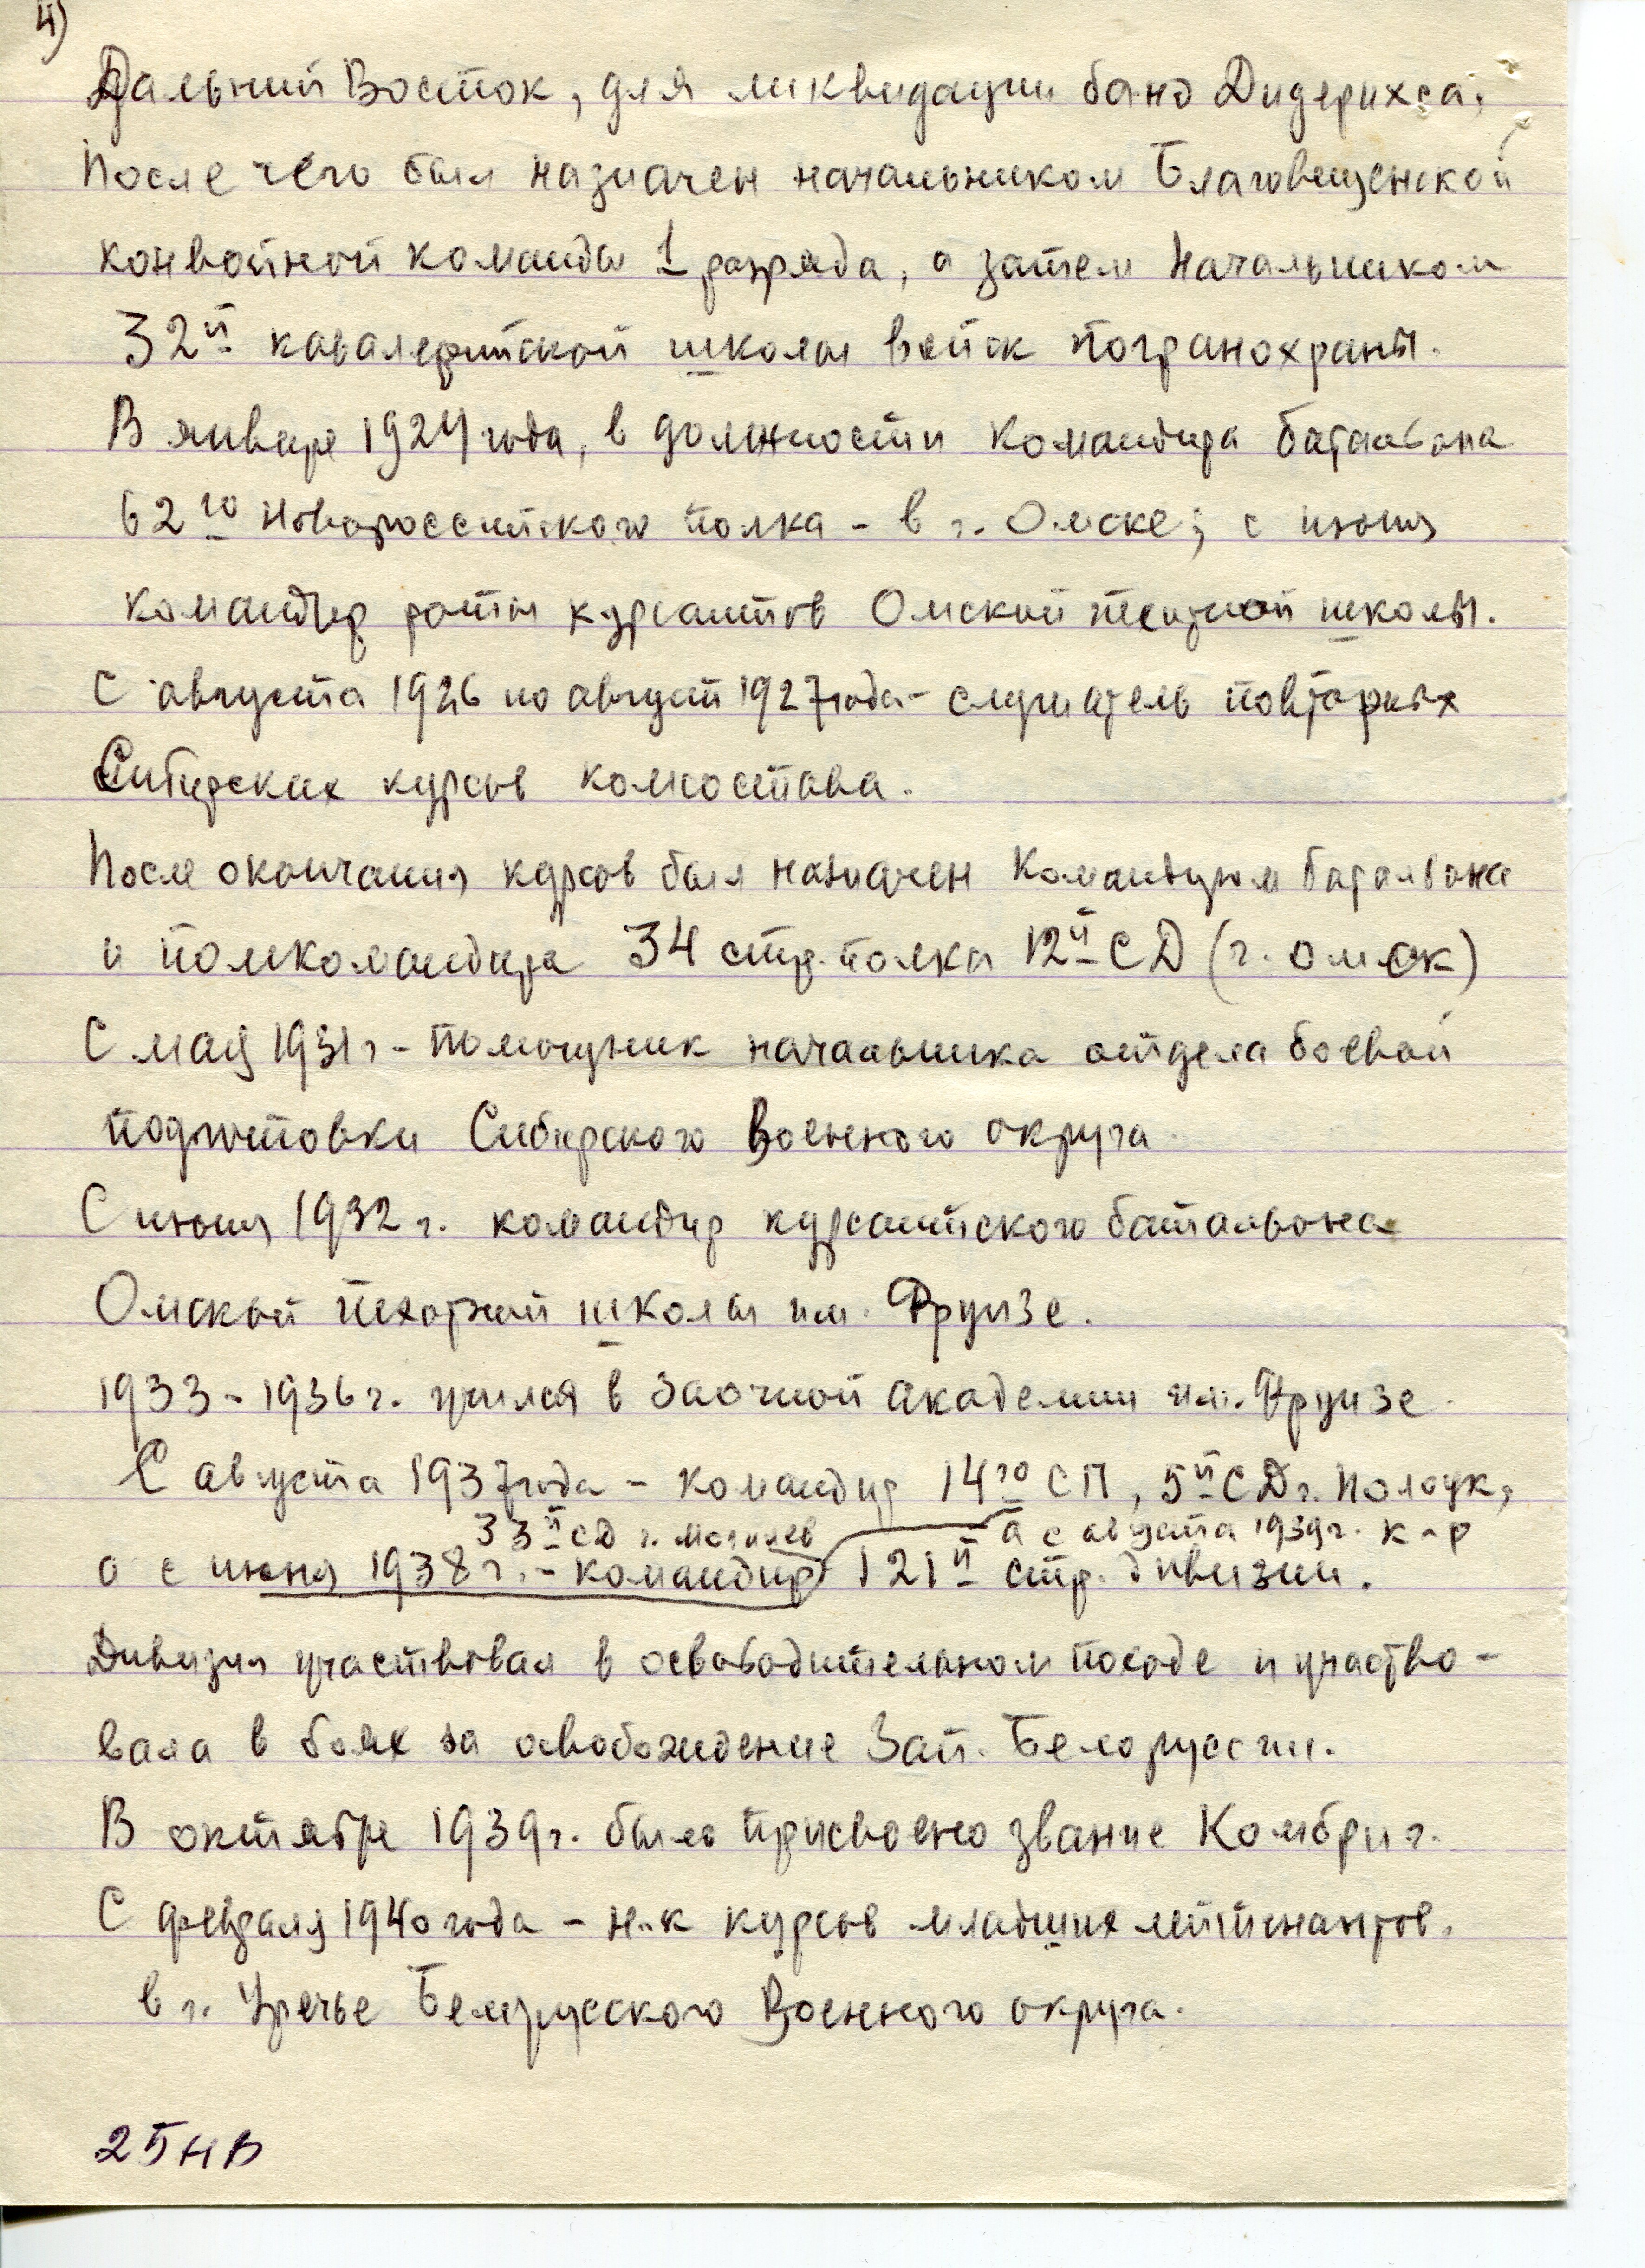 4)
Дальний Восток, для ликвидации банд Дидерихса.
После чего был назначен начальником Благовещенской
конвойной команды 1 разряда, а затем начальником
32й кавалерийской школы войск погранохраны.
В январе 1924 года, в должности командира батальона
62го Новороссийского полка - в г. Омске; с июня
командир роты курсантов Омской пехотной школы.
С августа 1926 по август 1927 года - слушатель повторных
Сибирских курсов комсостава.
После окончания курсов был назначен командиром батальона
и помкомандира 34 стр. полка 12й СД (г. Омск)
С мая 1931 г - помощник начальника отдела боевой
подготовки Сибирского Военного округа.
С июня 1932 г. командир курсантского батальона
Омской пехотной школы им. Фрунзе.
1933 - 1936 г. учился в Заочной академии им. Фрунзе.
С августа 1937 года - командир 14го СП, 5й СД г. Полоцк,
33й СД г. Могилев а с августа 1939 г. к-р
а с июня 1938 г. - командир 121й стр. дивизии.
Дивизия участвовал в освободительном походе и участво-
вала в боях за освобождение Зап. Белоруссии.
В октябре 1939 г. было присвоено звание Комбриг.
С февраля 1940 года - н-к курсов младших лейтенантов.
в г. Уречье Белорусского Военного округа.
25НВ